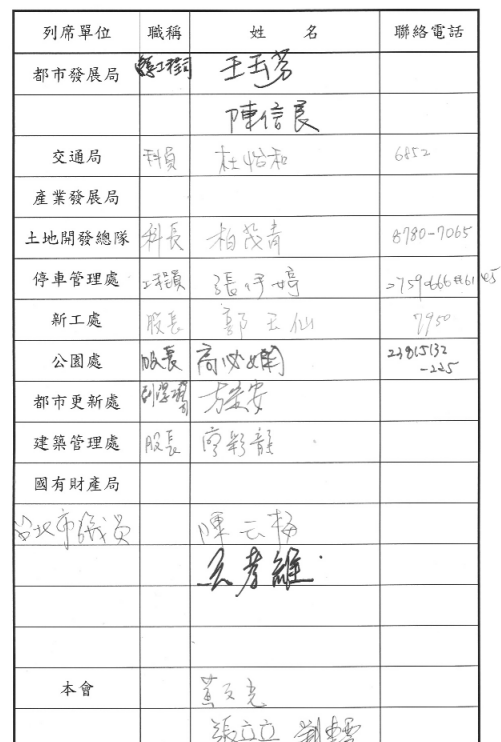 列席單位 職稱 姓 名 聯絡電話
都市發展局 王玉芬
陳信良
交通局 科員 杜怡和 6852
產業發展局
土地開發總隊 科長 柏茂青 8780-7065
停車管理處 工程員 張
新工處 股長 郭玉仙 7950
公園處 股長 高 23815132
-225
都市更新處 安
建築管理處 股長 廖彩龍
國有財產局
台北市議員 陳
本會 黃
張立立 劉